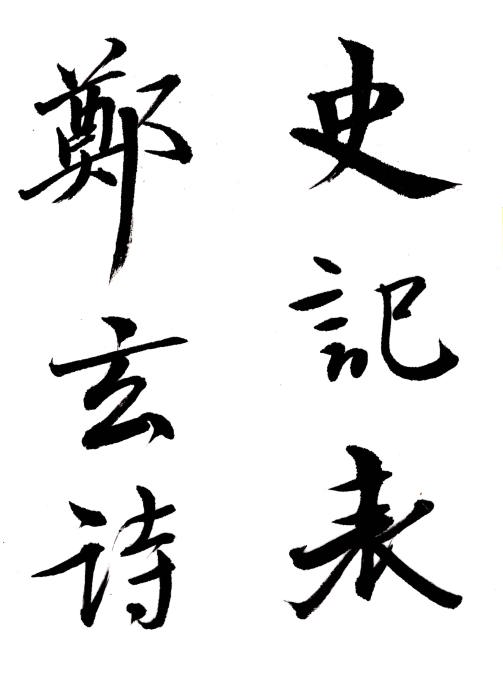 史記表
鄭玄诗